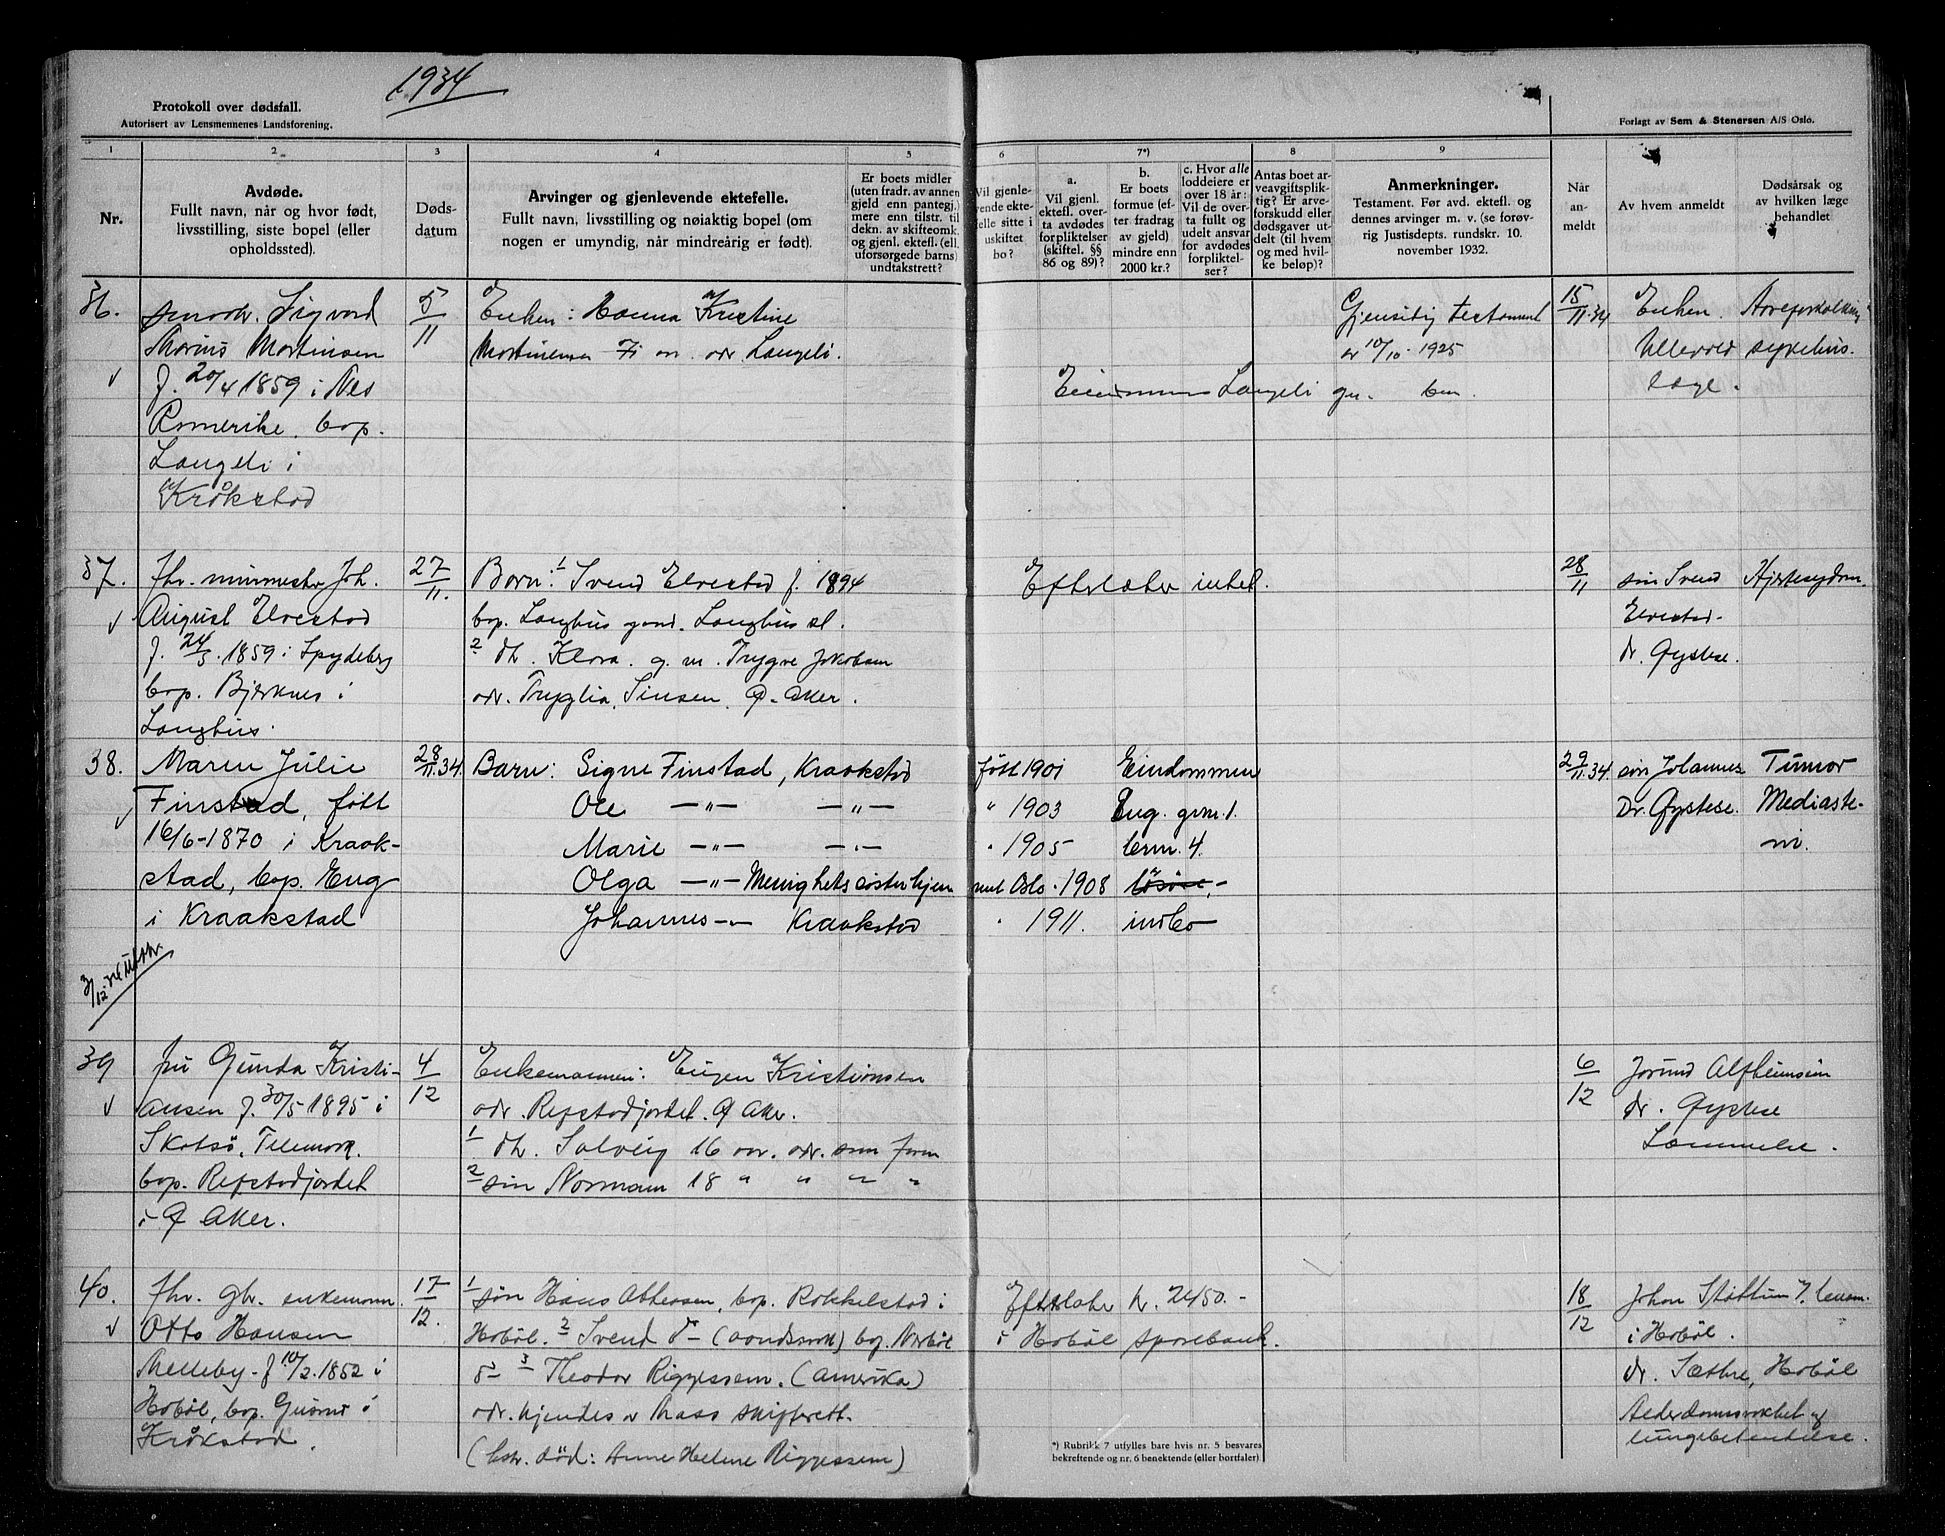 1934
Protokoll over dødsfall.
Autorisert av Lensmennenes Landsforening.
Forlagt av Sem & Stenersen A/S Oslo.
1 2 3 4 5 6 7*) 8 9
Nr.
Avdøde.
Fullt navn, når og hvor født,
livsstilling, siste bopel (eller
opholdssted).
Døds-
datum
Arvinger og gjenlevende ektefelle.
Fullt navn, livsstilling og nøiaktig bopel (om
nogen er umyndig, når mindreårig er født).
Er boets midler
(uten fradr. av annen
gjeld enn pantegj.)
mere enn tilstr. til
dekn. av skifteomk.
og gjenl. ektefl. (ell.
uforsørgede barns)
undtakstrett?
Vil gjenle-
vende ekte-
felle sitte i
uskiftet
bo?
a.
Vil gjenl.
ektefl. over-
ta avdødes
forpliktelser
(skiftel. §§
86 og 89)?
b.
Er boets
formue (ef-
ter fradrag
av gjeld)
mindre enn
2000 kr.?
c. Hvor alle
loddeiere er
over 18 år:
Vil de over-
ta fullt og
udelt ansvar
for avdødes
forpliktel-
ser?
Antas boet ar-
veavgiftsplik-
tig? Er arve-
forskudd eller
dødsgaver ut-
delt (til hvem
og med hvil-
ke beløp)?
Anmerkninger.
Testament. Før avd. ektefl. og
dennes arvinger m. v. (se forøv-
rig Justisdepts. rundskr. 10.
november 1932.
Når
an-
meldt
Av hvem anmeldt
Dødsårsak og
av hvilken læge
behandlet
36.
Sigvard
Marius Martinsen
f. 20/4 1859 i Nes
Romerike. bop.
Langeli i
Kråkstad
5/11
Enken: Hanna Kristine
Martinsen adr. Langeli.
Eiendommen Langeli gn. bnr.
Gjensidig testament
av 10/10 1925
15/11.34
Enken. Areforkalkning
Ullevold sykehus.
læge.
37.
fhv. murmester Joh.
August Elvestad
f. 24/3. 1859 i Spydeberg
bop. Bjerknes i
Langhus.
27/11.
Barn: 1 Svend Elvestad f. 1894
bop. Langhus gaard. Langhus st.
2 dt. Klara. g. m. Trygve Jakobsen
adr. Sinsen. Ø. Aker.
Efterlater intet.
28/11
søn Svend
Elvestad.
dr. Gystese.
Hjertesygdom.
38.
Maren Julie
Finstad, født
16/6-1870 i Kraak-
stad, bop. Eng
i Kraakstad
28/11.34.
Barn: Signe Finstad, Kraakstad født 1901
Ole —"— —"— " 1903
Marie —"— —"— " 1905
Olga —"— Menighetssøsterhjem Oslo. 1908
Johannes —"— Kraakstad " 1911.
Eiendommen
Eng. grn. 1.
brn. 4.
løsøre, -
indbo
29/11.34.
søn Johannes
Dr. Gystese.
Tumor
Mediaste-
ni.
3/12.34
39
fru Gunda Kristi-
ansen f. 30/5 1895 i
Skotsø, Telemark.
bop. Refstadjordet
i Ø Aker.
4/12
Enkemannen: Eugen Kristiansen
adr. Refstadjordet. Ø Aker.
1 dt. Solveig 16 aar. adr. som foran
2 søn Normann 18 " " " "
6/12
Jorund Alfheimseim
dr. Gystese
Lammelse.
40.
fhv. gbr. enkemann.
Otto Hansen
Melleby. f 10/2. 1852 i
Hobøl, bop. i
Kråkstad.
17/12.
1 søn Hans Ottersen, bop. Rokkelstad i
Hobøl. 2 Svend d- (aandssvak) bop. Norbøl
d- 3 Theodor Riggessem. (Amerika)
adr. kjendes av Moss skifterett.
(hstr. død: Anne Helene Riggessem)
Efterlater kr. 2450.-
i Hobøl sparebank.
18/12
Johan Støttum
i Hobøl.
dr. Sæthre, Hobøl
Alderdomssvakhet og
lungebetendelse.
*) Rubrikk 7 utfylles bare hvis nr. 5 besvares
bekreftende og nr. 6 benektende (eller bortfaller)